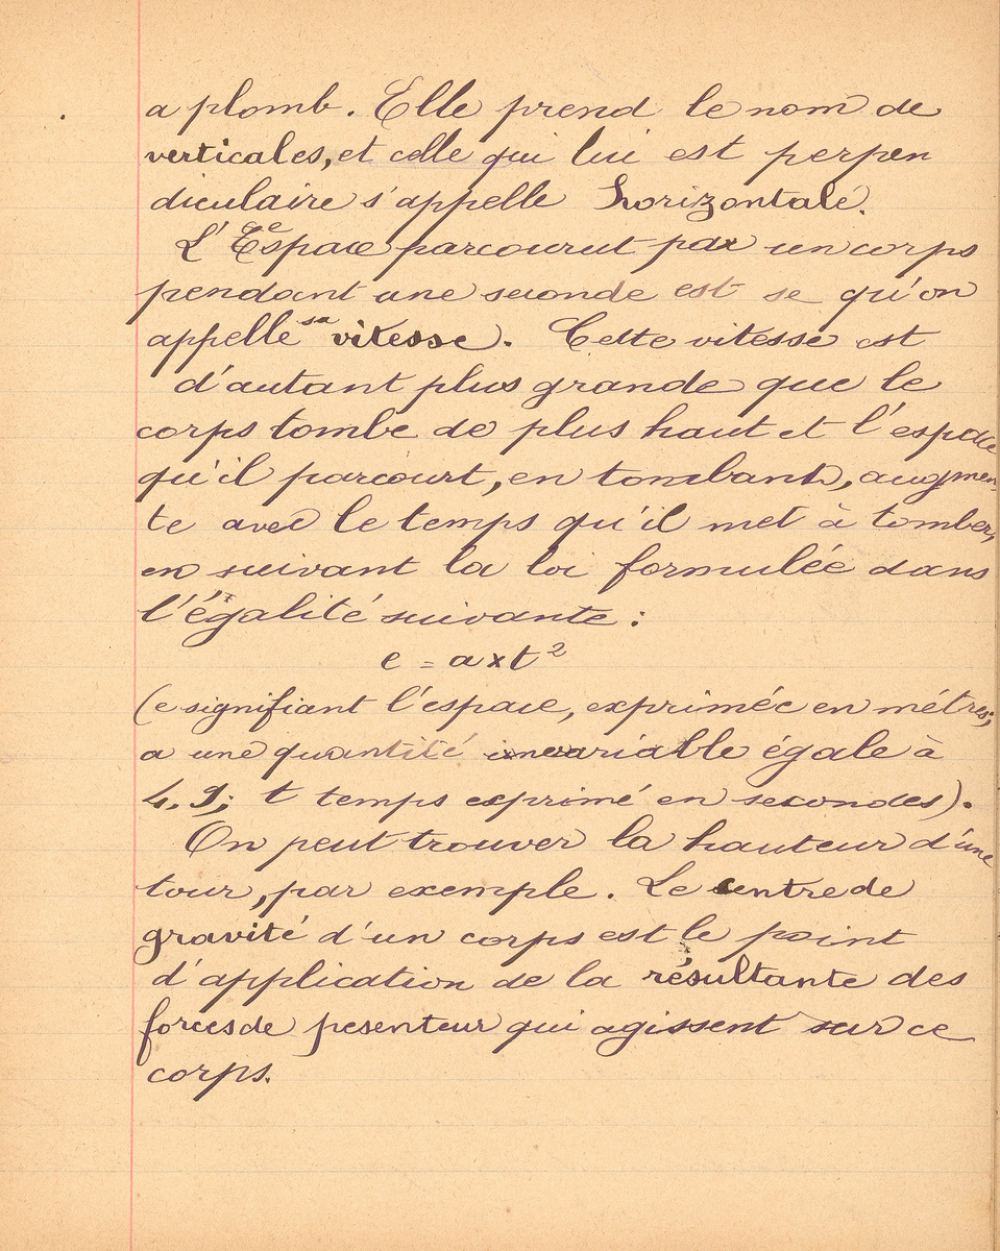 a plomb. Elle prend le nom de
verticales, et celle qui lui est perpen
diculaire s'appelle horizontale.
L'Espace parcourut par un corps
pendant une seconde est se qu'on
appelle sa vitesse. Cette vitesse est
d'autant plus grande que le
corps tombe de plus haut et l'espace
qu'il parcourt, en tombant, augmen-
te avec le temps qu'il met à tomber,
en suivant la loi formulée dans
l'égalité suivante :
e = a x t²
(e signifiant l'espace, exprimée en métres;
a une quantité invariable égale à
4,9; t temps exprimé en secondes).
On peut trouver la hauteur d'une
tour, par exemple. Le centre de
gravité d'un corps est le point
d'application de la résultante des
forces de pesenteur qui agissent sur ce
corps.